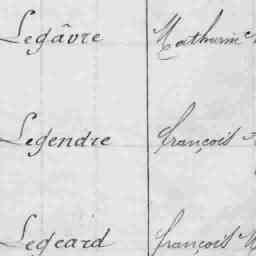 Legâvre Mathurin
Legendre François
Legeard François